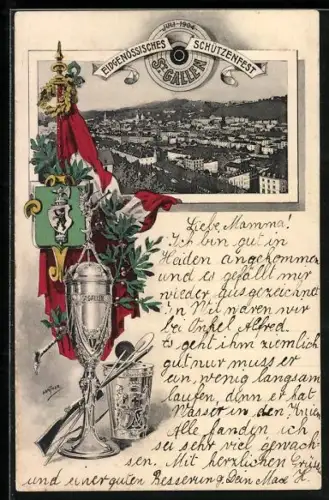 JULI-1904
EIDGENÖSSISCHES SCHÜTZENFEST
ST. GALLEN
Liebe Mamma!
Ich bin gut in
Heiden angekommen
und es gefällt mir
wieder ausgezeichnet
in Wil waren wir
bei Onkel Alfred.
Es geht ihm ziemlich
gut nur muss er
ein wenig langsam
laufen, dann er hat
Wasser in den Knien
Alle fanden ich
sei sehr viel gewach-
sen. Mit herzlichen Grüße
und einer guten Besserung Dein Max H.